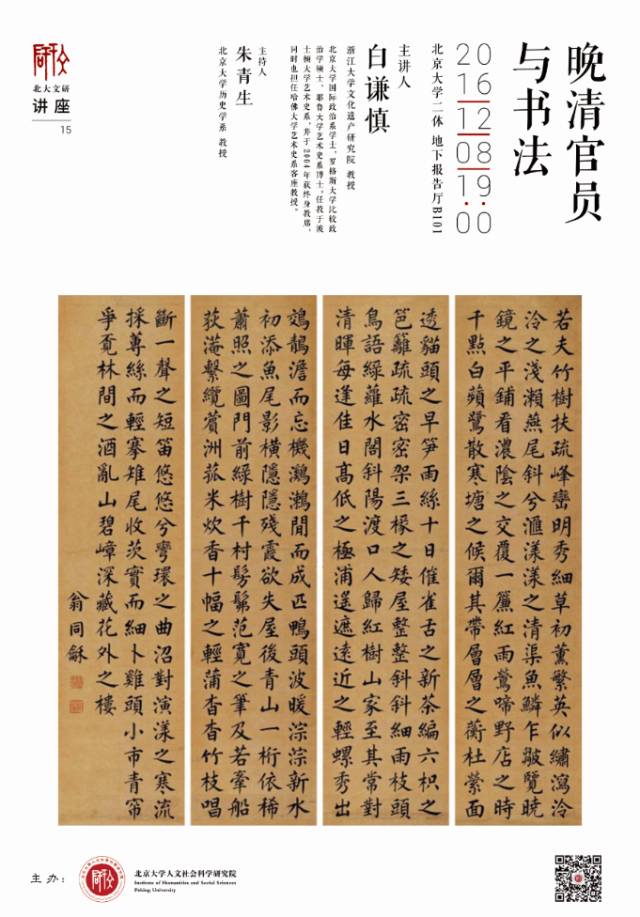 晚清官员
与书法
2016|12|08|19:00
北京大学二体 地下报告厅B101
主讲人
白谦慎
浙江大学文化遗产研究院 教授
北京大学国际政治系学士、罗格斯大学比较政
治学硕士、耶鲁大学艺术史系博士,任教于波
士顿大学艺术史系,并于2004年获终身教职,
同时也担任哈佛大学艺术史系客座教授。
主持人
朱青生
北京大学历史学系 教授
北大文研
讲座
15
若夫竹樹扶疏峰巒明秀細草初薰繁英似繡瀉泠
泠之淺瀨燕尾斜兮滙漾漾之清渠魚鱗乍皺覽曉
鏡之平鋪看濃陰之交覆一簾紅雨鶯啼野店之時
千點白蘋鷺散寒塘之候爾其帶層層之蘅杜縈面
透貓頭之早笋雨絲十日催雀舌之新茶編六枳之
笆籬疏疏密密架三椽之矮屋整整斜斜細雨枝頭
鳥語綠蘿水閣斜陽渡口人歸紅樹山家至其常對
清暉每逢佳日高低之極浦遙遮遠近之輕螺秀出
鵁鶄澹而忘機鸂鶒閒而成匹鴨頭波暖淙淙新水
初添魚尾影橫隱隱殘霞欲失屋後青山一桁依稀
蕭照之圖門前綠樹千村髣髴范寬之筆及若牽船
荻港繫纜蘋洲菰米炊香十幅之輕蒲杳杳竹枝唱
斷一聲之短笛悠悠兮彎環之曲沼對演漾之寒流
採蓴絲而輕搴雉尾收茨實而細卜雞頭小市青帘
爭賣林間之酒亂山碧嶂深藏花外之樓
翁同龢
主办:
北京大学人文社会科学研究院
Institute of Humanities and Social Sciences
Peking University